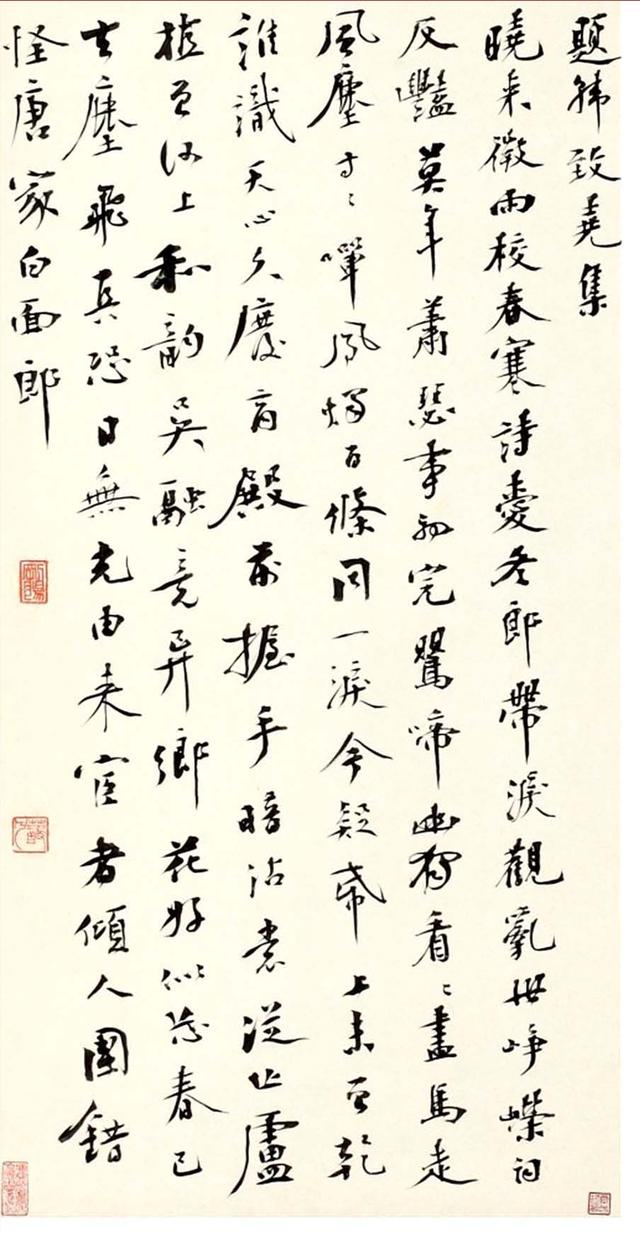 題韓致堯集
曉來微雨校春寒詩愛冬郎帶淚觀亂世崢嶸詞
反豔莫年蕭瑟事初完鶯啼幽獨看〻盡馬走
風塵寸〻嘽鳳燭百條同一淚今疑帋上未曾乾
誰識天心久廢商殿前握手暗沾裳從亡盧
植曾河上和韻吳融竟異鄉花好似恐春已
去塵飛真恐日無光由來宦者傾人國錯
怪唐家白面郎